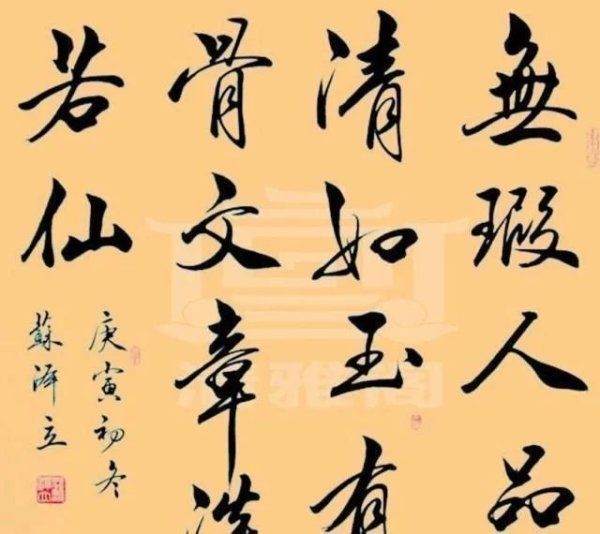 無瑕人品
清如玉有
骨文章
若仙
庚寅初冬
蘇澤立